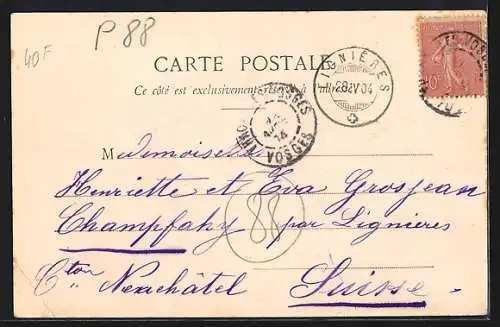 P 88
40F
CARTE POSTALE
Ce côté est exclusivement réservé à l'adresse
LIGNIÈRES
28.IV.04
VOSGES
10
Mademoiselle
Henriette et Eva Grosjean
Champfahy par Lignières
88
Cton Neuchâtel Suisse